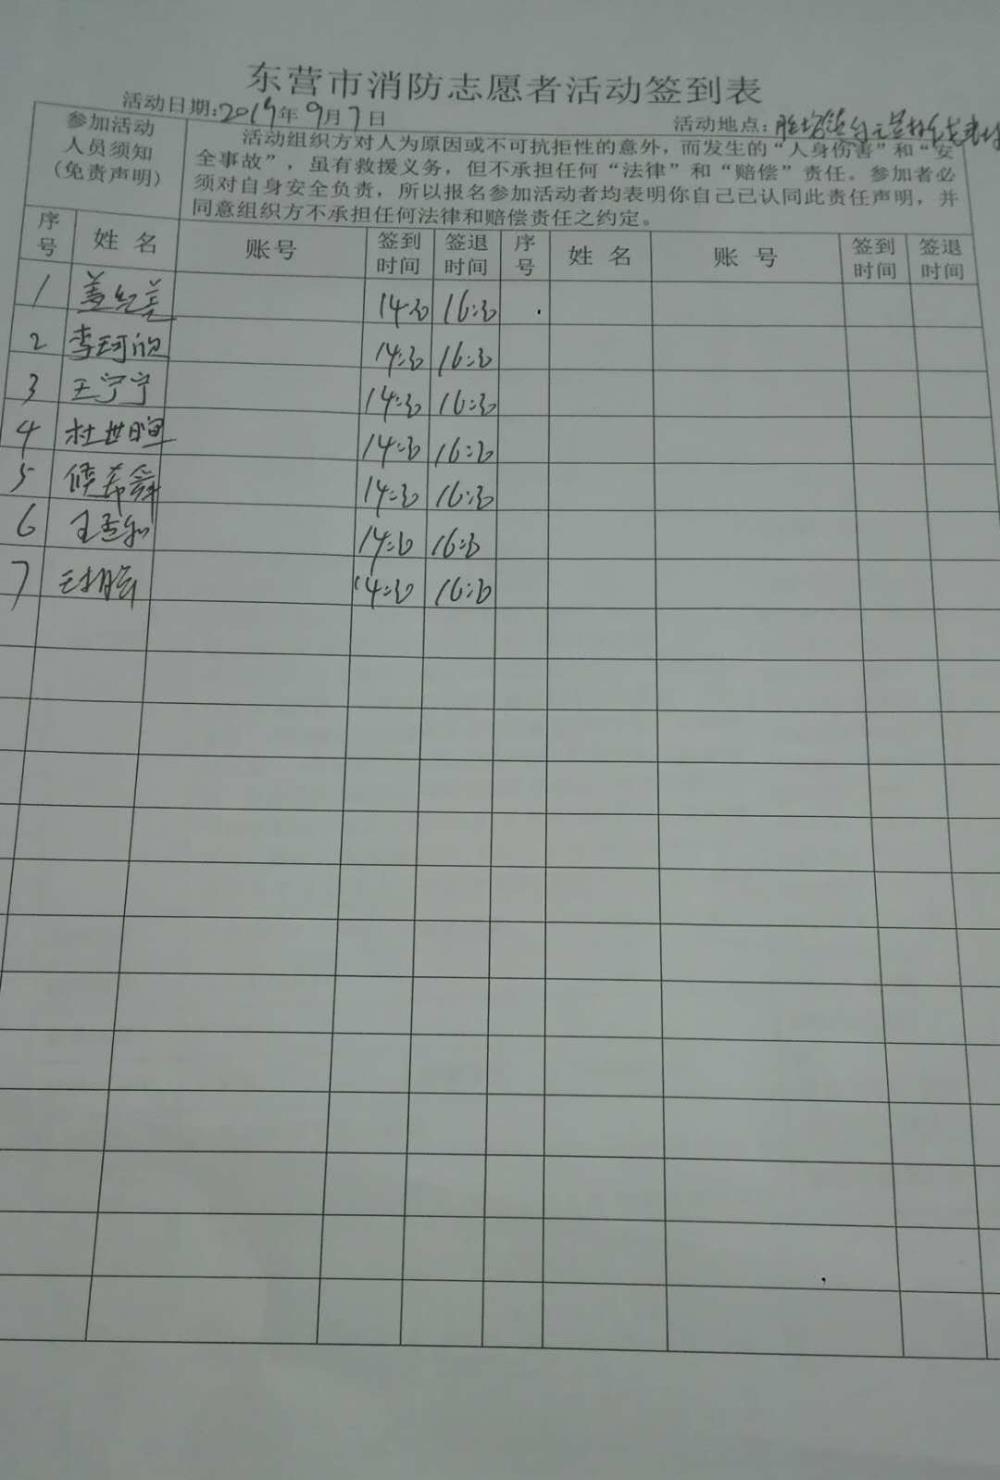 东营市消防志愿者活动签到表
活动日期:2019年9月7日 活动地点:
参加活动
人员须知
(免责声明)
活动组织方对人为原因或不可抗拒性的意外，而发生的“人身伤害”和“安
全事故”，虽有救援义务，但不承担任何“法律”和“赔偿”责任。参加者必
须对自身安全负责，所以报名参加活动者均表明你自己已认同此责任声明，并
同意组织方不承担任何法律和赔偿责任之约定。
序号 姓名 账号 签到时间 签退时间 序号 姓名 账号 签到时间 签退时间
1 14:30 16:30
2 李珂欣 14:30 16:30
3 王宁宁 14:30 16:30
4 杜世暄 14:30 16:30
5 侯希舜 14:30 16:30
6 王 14:30 16:30
7 14:30 16:30